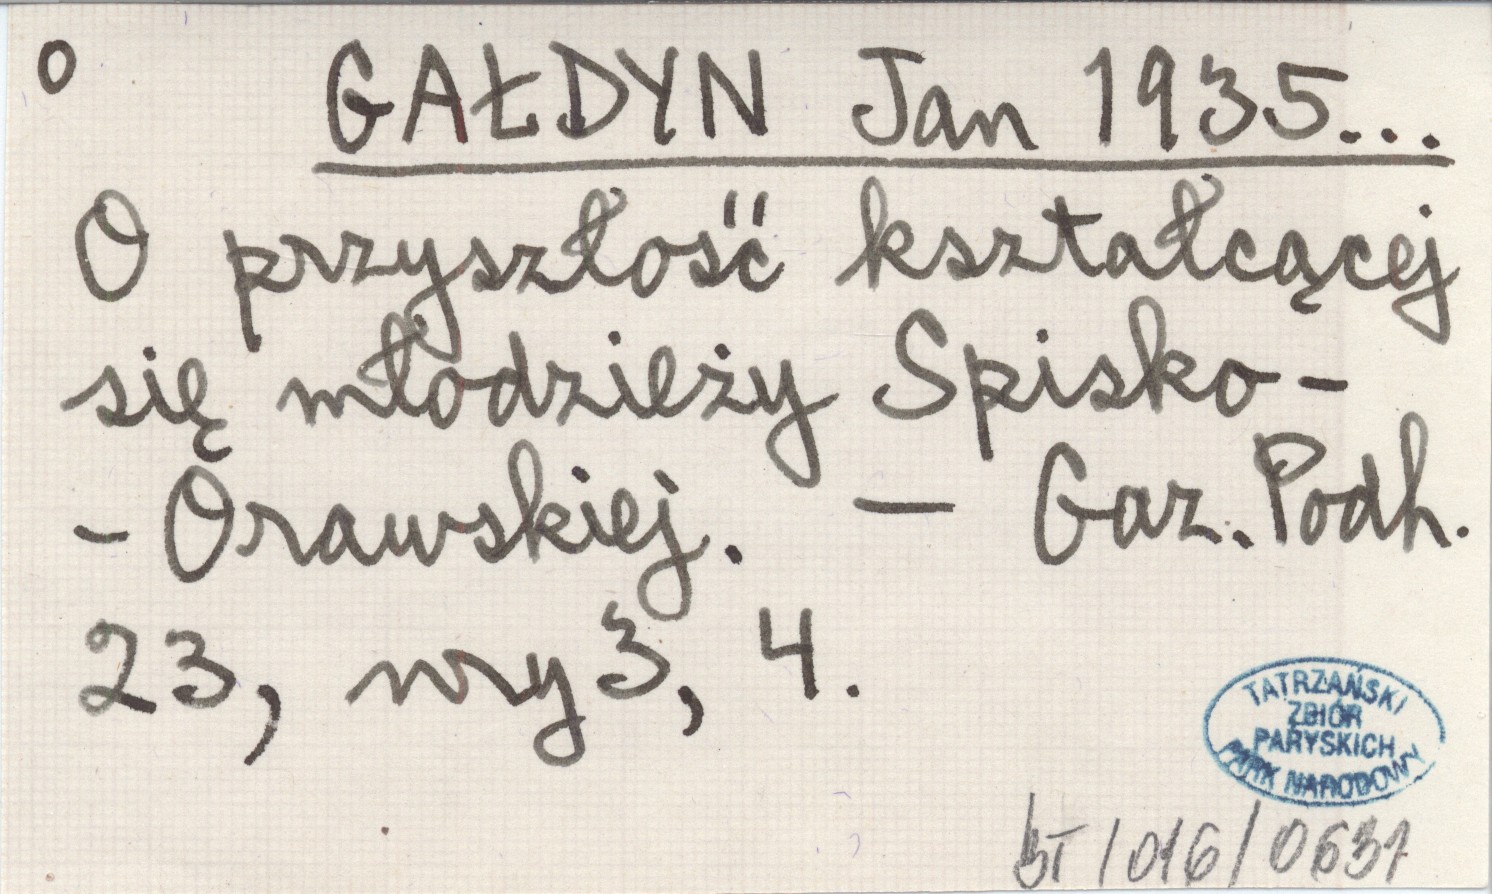 o GAŁDYN Jan 1935...
O przyszłość kształcącej
się młodzieży Spisko-
- Orawskiej. — Gaz. Podh.
23, nry 3, 4.
TATRZAŃSKI
ZBIÓR
PARYSKICH
PARK NARODOWY
BT/016/0631